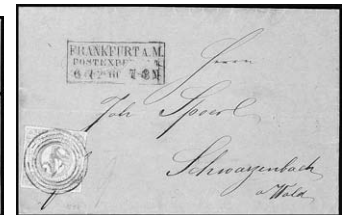 FRANKFURT A.M.
Herrn
Joh Spoerl
Schwarzenbach
a/Wald